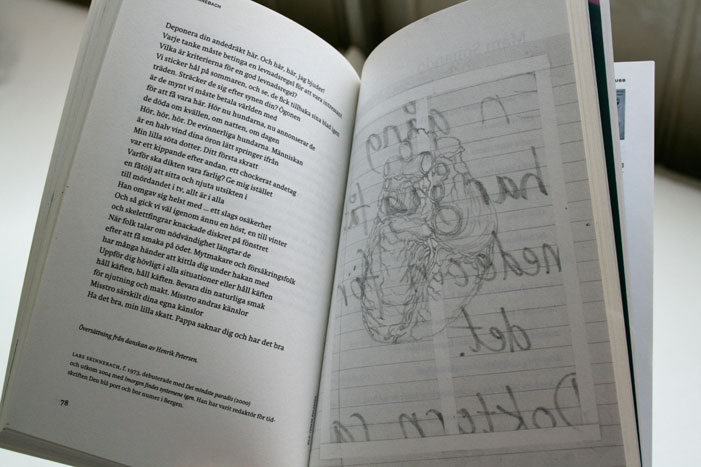 NNEBACH
Deponera din andedräkt här. Och här, här, jag bjuder!
Varje tanke måste betinga en levnadsregel för att vara interessant
Vilka är kriterierna för en god levnadsregel?
Vi sticker hål på sommaren, och se, de fick tillbaka sina blad igen
träden. Sträcker de sig efter synen din? Ögonen
är de mynt vi måste betala världen med
för att få vara här. Hör nu hundarna, nu annonserar de
de döda om kvällen, om natten, om dagen
Hör, hör, hör. De evinnerliga hundarna. Människan
är en halv vind dina öron lätt springer ifrån
Min lilla söta dotter. Ditt första skratt
var ett kippande efter andan, ett chockerat andetag
Varför ska dikten vara farlig? Ge mig istället
en fåtölj att sitta och njuta utsikten i
till mördandet i tv, allt är i alla
Han omgav sig helst med ... ett slags osäkerhet
Och så gick vi väl igenom ännu en höst, en till vinter
och skelettfingrar knackade diskret på fönstret
När folk talar om nödvändighet längtar de
efter att få smaka på ödet. Mytmakare och försäkringsfolk
har många händer att kittla dig under hakan med
Uppför dig hövligt i alla situationer eller håll käften
håll käften, håll käften. Bevara din naturliga smak
för njutning och makt. Misstro andras känslor
Misstro särskilt dina egna känslor
Ha det bra, min lilla skatt. Pappa saknar dig och har det bra
Översättning från danskan av Henrik Petersen.
LARS SKINNEBACH, f. 1973, debuterade med Det mindste paradis (2000)
och utkom 2004 med Imorgen findes systemerne igen. Han har varit redaktör för tid-
skriften Den blå port och bor numer i Bergen.
78
gång
har
det.
Doktorn sa